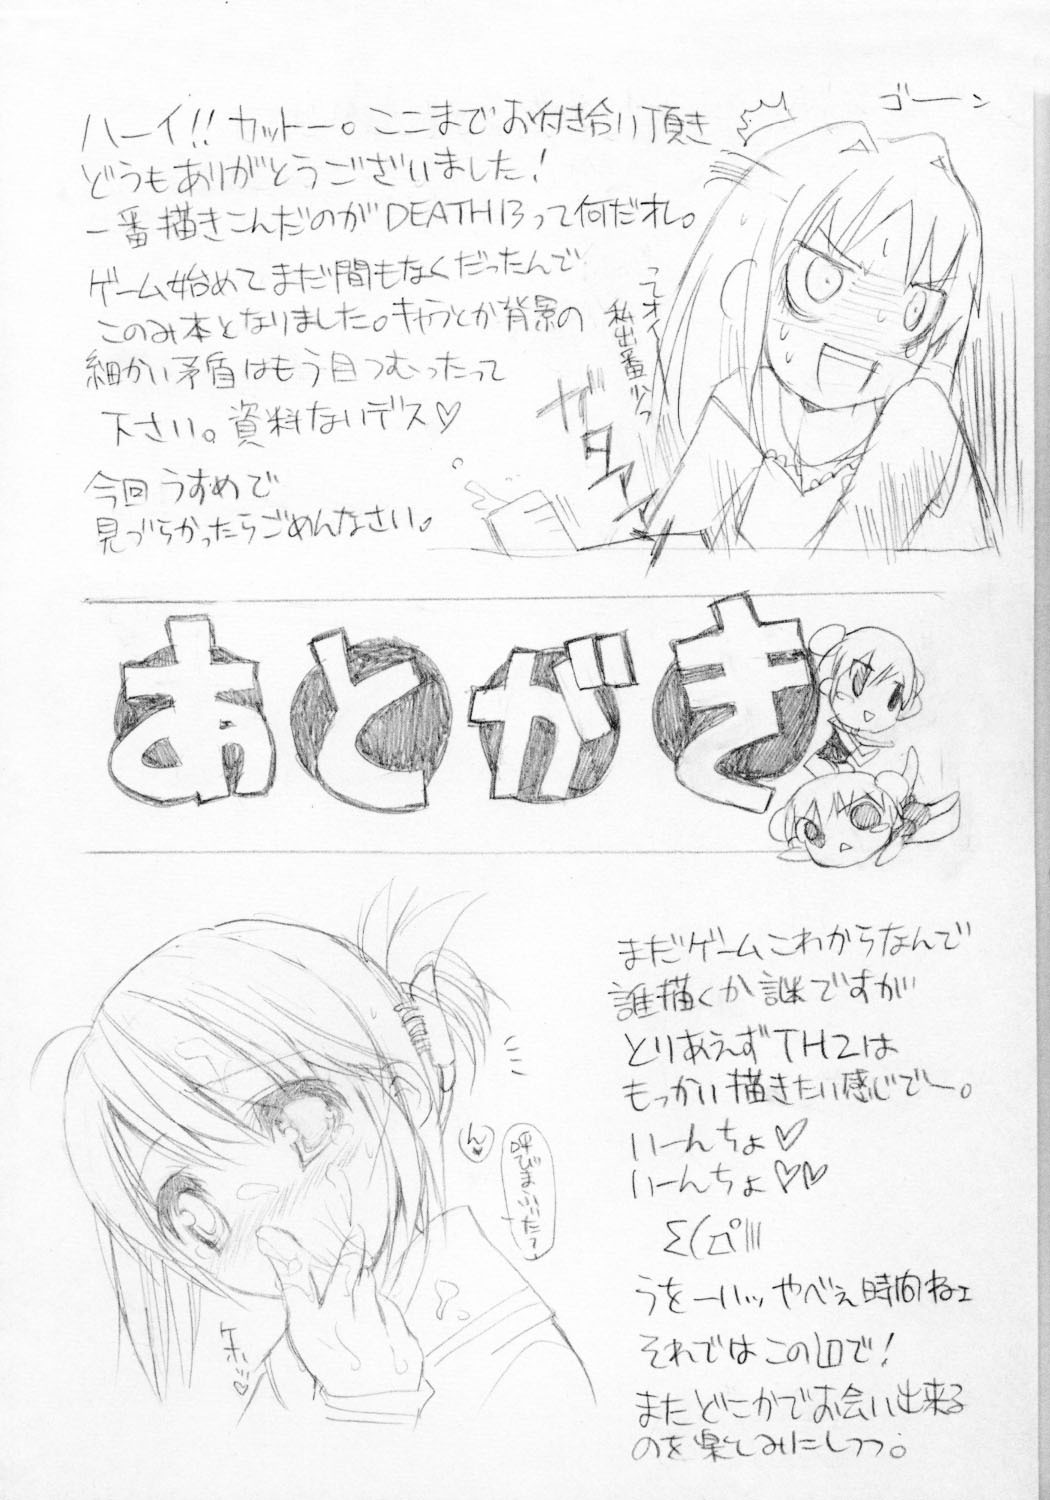 ハーイ!!カットー。ここまでお付き合い頂き
どうもありがとうございました!
一番描きこんだのがDEATH13って何だオレ。
ゲーム始めてまだ間もなくだったんで
このみ本となりました。キャラとか背景の
細かい矛盾はもう目つむったって
下さい。資料ないデス♡
今回うすめで
見づらかったらごめんなさい。
ゴーン
ってオイ
私出番少っ
ガタァン
あとがき
まだゲームこれからなんで
誰描くか謎ですが
とりあえずTH2は
もっかい描きたい感じでー。
いーんちょ♡
いーんちょ♡♡
Σ(゚Д゚|||
うをーいッ やべぇ時間ねェ
それではこの辺で!
またどこかでお会い出来る
のを楽しみにしつつ。
ん♡
呼びましたぁ?